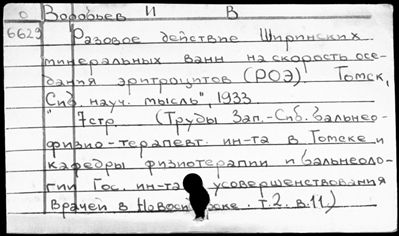 о Воробьев И В
6629 Разовое действие Ширинских
минеральных ванн на скорость осе-
дания эритроцитов (РОЭ) Томск,
"Сиб. науч. мысль", 1933
7стр. (Труды Зап.-Сиб. бальнео-
физио-терапевт. ин-та в Томске и
кафедры физиотерапии и бальнеоло-
гии Гос. ин-та усовершенствования
врачей в т.2. в.11.)